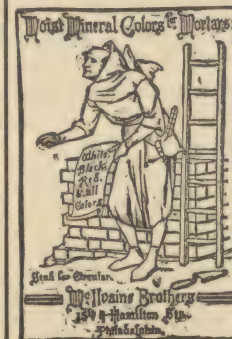 Moist Mineral Colors for Mortars
White
Black
Red
& all
Colors
Send for Circular.
McIlvain Brothers
Hamilton Sts.
Philadelphia.